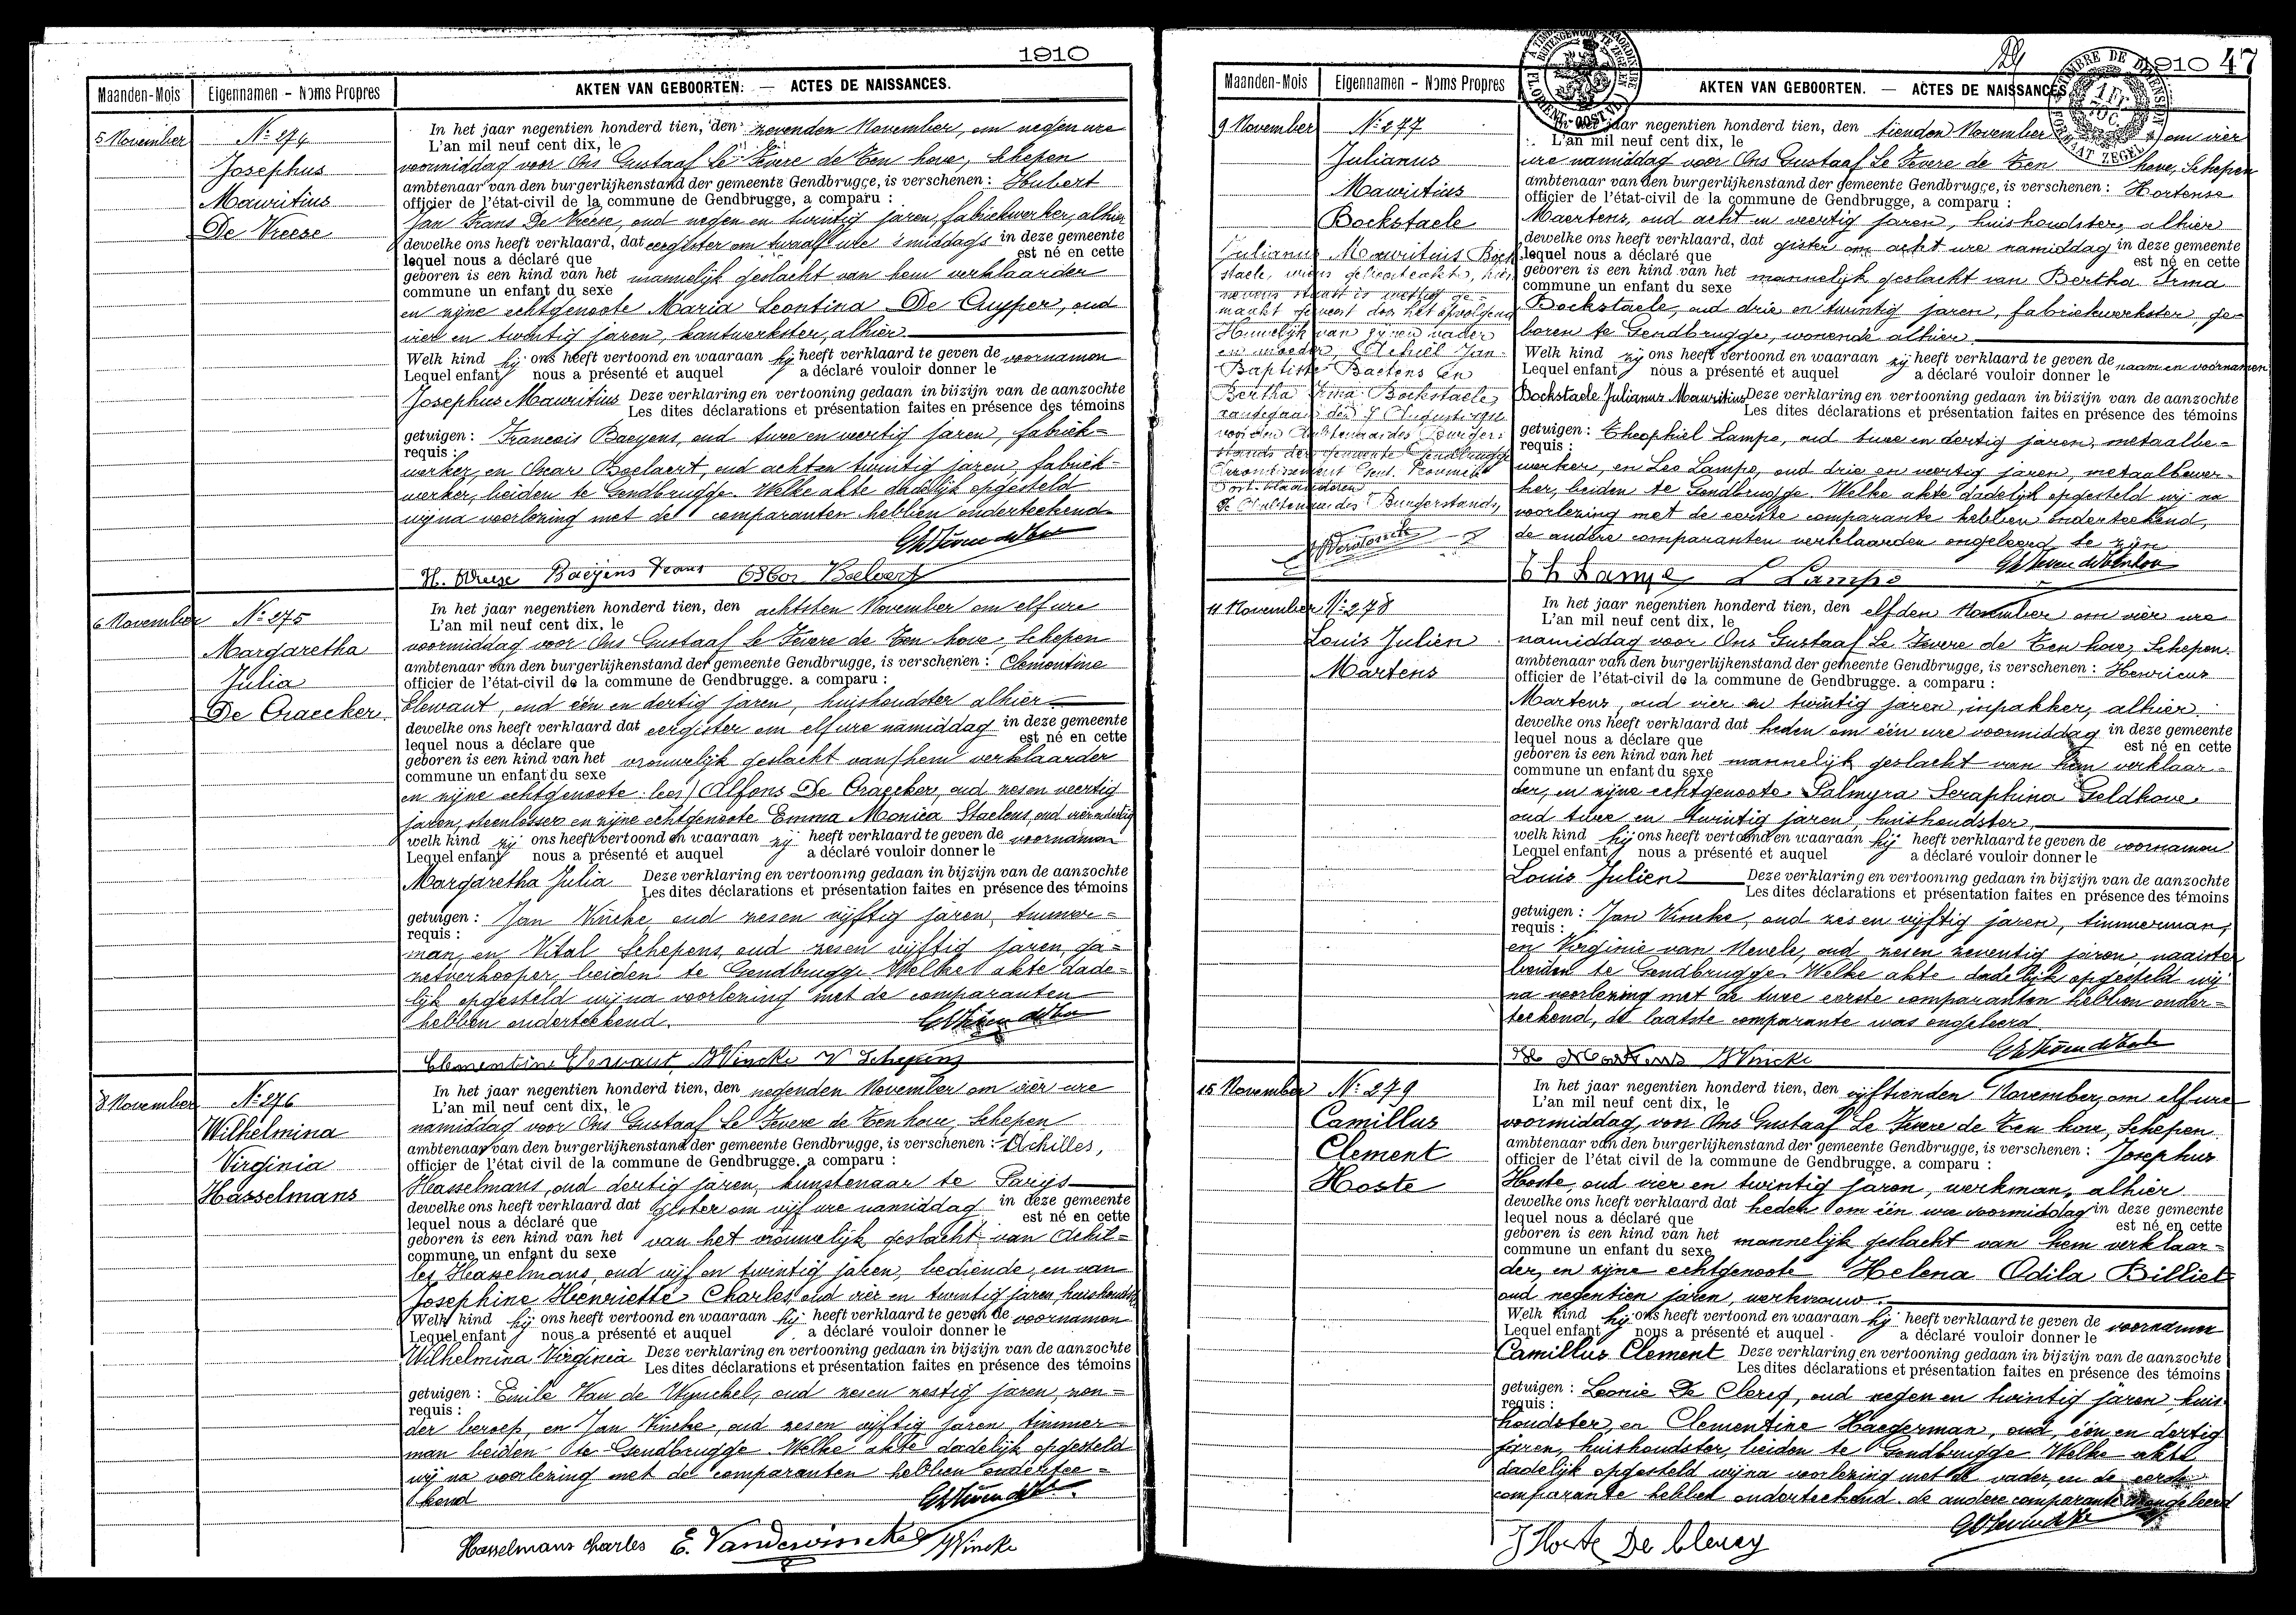 1910
Maanden-Mois Eigennamen - Noms Propres AKTEN VAN GEBOORTEN. — ACTES DE NAISSANCES.
5 November
N° 274
Josephus
Mauritius
De Vreese
In het jaar negentien honderd tien, den zevenden November, om negen ure
L'an mil neuf cent dix, le
voormiddag voor Ons Gustaaf Le Fevere de Ten hove, Schepen
ambtenaar van den burgerlijkenstand der gemeente Gendbrugge, is verschenen : Hubert
officier de l'état-civil de la commune de Gendbrugge, a comparu :
Jan Frans De Vreese, oud negen en twintig jaren, fabriekwerker, alhier
dewelke ons heeft verklaard, dat eergister om twaalf ure 's middags in deze gemeente
lequel nous a déclaré que est né en cette
geboren is een kind van het mannelijk geslacht van hem verklaarder
commune un enfant du sexe
en zijne echtgenoote Maria Leontina De Cuyper, oud
vier en twintig jaren, kantwerkster, alhier
Welk kind hij ons heeft vertoond en waaraan hij heeft verklaard te geven de voornamen
Lequel enfant nous a présenté et auquel a déclaré vouloir donner le
Josephus Mauritius Deze verklaring en vertooning gedaan in bijzijn van de aanzochte
Les dites déclarations et présentation faites en présence des témoins
getuigen : Francois Baeyens, oud twee en veertig jaren, fabriek-
requis :
werker, en Oscar Boelaert, oud acht en twintig jaren, fabriek-
werker, beiden te Gendbrugge. Welke akte dadelijk opgesteld
wij na voorlezing met de comparanten hebben onderteekend
H. Vreese Baeyens Frans Oscar Boelaert
6 November
N° 275
Margaretha
Julia
De Craecker
In het jaar negentien honderd tien, den achtsten November om elf ure
L'an mil neuf cent dix, le
voormiddag voor Ons Gustaaf Le Fevere de Ten hove, Schepen
ambtenaar van den burgerlijkenstand der gemeente Gendbrugge, is verschenen : Clementine
officier de l'état-civil de la commune de Gendbrugge. a comparu :
Elewaut, oud één en dertig jaren, huishoudster alhier
dewelke ons heeft verklaard dat eergister om elf ure namiddag in deze gemeente
lequel nous a déclare que est né en cette
geboren is een kind van het vrouwelijk geslacht van (hem verklaarder
commune un enfant du sexe
en zijne echtgenoote lees) Alfons De Craecker, oud zes en veertig
jaren, steenlosser en zijne echtgenoote Emma Monica Staelens, oud vier en dertig
welk kind zij ons heeft vertoond en waaraan zij heeft verklaard te geven de voornamen
Lequel enfant nous a présenté et auquel a déclaré vouloir donner le
Margaretha Julia Deze verklaring en vertooning gedaan in bijzijn van de aanzochte
Les dites déclarations et présentation faites en présence des témoins
getuigen : Jan Vincke oud zes en vijftig jaren, timmer-
requis :
man, en Vital Schepens, oud zes en vijftig jaren, ga-
zetverkooper, beiden te Gendbrugge. Welke akte dade-
lijk opgesteld wij na voorlezing met de comparanten
hebben onderteekend.
Clementine Elewaut, J Vincke V Schepens
8 November
N° 276
Wilhelmina
Virginia
Hasselmans
In het jaar negentien honderd tien, den negenden November om vier ure
L'an mil neuf cent dix, le
namiddag voor Ons Gustaaf Le Fevere de Ten hove, Schepen
ambtenaar van den burgerlijkenstand der gemeente Gendbrugge, is verschenen : Achilles,
officier de l'état civil de la commune de Gendbrugge. a comparu :
Hasselmans, oud dertig jaren, kunstenaar te Parijs
dewelke ons heeft verklaard dat gister om vijf ure namiddag in deze gemeente
lequel nous a déclaré que est né en cette
geboren is een kind van het van het vrouwelijk geslacht van Achil-
commune un enfant du sexe
les Hasselmans, oud vijf en twintig jaren, bediende, en van
Josephine Henriette Charles, oud vier en twintig jaren, huishoudster
Welk kind hij ons heeft vertoond en waaraan hij heeft verklaard te geven de voornamen
Lequel enfant nous a présenté et auquel a déclaré vouloir donner le
Wilhelmina Virginia Deze verklaring en vertooning gedaan in bijzijn van de aanzochte
Les dites déclarations et présentation faites en présence des témoins
getuigen : Emile Van de Wynckel, oud zes en zestig jaren, zon-
requis :
der beroep, en Jan Vincke, oud zes en vijftig jaren, timmer-
man beiden te Gendbrugge. Welke akte dadelijk opgesteld
wij na voorlezing met de comparanten hebben ondertee-
kend
Hasselmans Charles E. Vandewinckel J Vincke
1910 47
Maanden-Mois Eigennamen - Noms Propres AKTEN VAN GEBOORTEN. — ACTES DE NAISSANCES.
9 November
N° 277
Julianus
Mauritius
Bockstaele
Julianus Mauritius Bock-
staele, wiens geboorteakte, hier
nevens staat is wettig ge-
maakt geweest door het opvolgend
Huwelijk van zijnen vader
en moeder, Achiel Jan-
Baptiste Baetens en
Bertha Irma Bockstaele,
aangegaan den 7 Augustus
voor den Ambtenaar des Burger-
stands der gemeente Gendbrugge
Arrondissement Gent. Provincie
Oost-Vlaanderen
De Ambtenaar des Burgerstands,
In het jaar negentien honderd tien, den tienden November om vier
L'an mil neuf cent dix, le
ure namiddag voor Ons Gustaaf Le Fevere de Ten hove, Schepen
ambtenaar van den burgerlijkenstand der gemeente Gendbrugge, is verschenen : Hortense
officier de l'état-civil de la commune de Gendbrugge, a comparu :
Maertens, oud acht en veertig jaren, huishoudster, alhier
dewelke ons heeft verklaard, dat gister om acht ure namiddag in deze gemeente
lequel nous a déclaré que est né en cette
geboren is een kind van het mannelijk geslacht van Bertha Irma
commune un enfant du sexe
Bockstaele, oud drie en twintig jaren, fabriekwerkster, ge-
boren te Gendbrugge, wonende alhier
Welk kind zij ons heeft vertoond en waaraan zij heeft verklaard te geven de naam en voornamen
Lequel enfant nous a présenté et auquel a déclaré vouloir donner le
Bockstaele Julianus Mauritius Deze verklaring en vertooning gedaan in bijzijn van de aanzochte
Les dites déclarations et présentation faites en présence des témoins
getuigen : Theophiel Lampe, oud twee en dertig jaren, metaalbe-
requis :
werker, en Leo Lampe, oud drie en veertig jaren, metaalbewer-
ker, beiden te Gendbrugge. Welke akte dadelijk opgesteld wij na
voorlezing met de eerste comparante hebben onderteekend,
de andere comparanten verklaarden ongeleerd te zijn
Th Lampe L Lampe
11 November
N° 278
Louis Julien
Martens
In het jaar negentien honderd tien, den elfden November om vier ure
L'an mil neuf cent dix, le
namiddag voor Ons Gustaaf Le Fevere de Ten hove, Schepen
ambtenaar van den burgerlijkenstand der gemeente Gendbrugge, is verschenen : Henricus
officier de l'état-civil de la commune de Gendbrugge. a comparu :
Martens, oud vier en twintig jaren, inpakker, alhier
dewelke ons heeft verklaard dat heden om één ure voormiddag in deze gemeente
lequel nous a déclare que est né en cette
geboren is een kind van het mannelijk geslacht van hem verklaar-
commune un enfant du sexe
der, en zijne echtgenoote Palmyra Seraphina Geldhove
oud twee en twintig jaren, huishoudster,
welk kind hij ons heeft vertoond en waaraan hij heeft verklaard te geven de voornamen
Lequel enfant nous a présenté et auquel a déclaré vouloir donner le
Louis Julien Deze verklaring en vertooning gedaan in bijzijn van de aanzochte
Les dites déclarations et présentation faites en présence des témoins
getuigen : Jan Vincke, oud zes en vijftig jaren, timmerman,
requis :
en Virginie van Nevele, oud zes en zeventig jaren, naaister
beiden te Gendbrugge. Welke akte dadelijk opgesteld wij
na voorlezing met de twee eerste comparanten hebben onder-
teekend, de laatste comparante was ongeleerd
H Martens J Vincke
15 November
N° 279
Camillus
Clement
Hoste
In het jaar negentien honderd tien, den vijftienden November, om elf ure
L'an mil neuf cent dix, le
voormiddag, voor Ons Gustaaf Le Fevere de Ten hove, Schepen
ambtenaar van den burgerlijkenstand der gemeente Gendbrugge, is verschenen : Josephus
officier de l'état civil de la commune de Gendbrugge. a comparu :
Hoste, oud vier en twintig jaren, werkman, alhier
dewelke ons heeft verklaard dat heden om één ure voormiddag in deze gemeente
lequel nous a déclaré que est né en cette
geboren is een kind van het mannelijk geslacht van hem verklaar-
commune un enfant du sexe
der, en zijne echtgenoote Helena Odila Billiet
oud negentien jaren, werkvrouw
Welk kind hij ons heeft vertoond en waaraan hij heeft verklaard te geven de voornamen
Lequel enfant nous a présenté et auquel a déclaré vouloir donner le
Camillus Clement Deze verklaring en vertooning gedaan in bijzijn van de aanzochte
Les dites déclarations et présentation faites en présence des témoins
getuigen : Leonie De Clercq, oud negen en twintig jaren, huis-
requis :
houdster, en Clementine Haegerman, oud één en dertig
jaren, huishoudster, beiden te Gendbrugge. Welke akte
dadelijk opgesteld wij na voorlezing met de vader, en de eerste
comparante hebben onderteekend. de andere comparante ongeleerd
J Hoste De Clercq